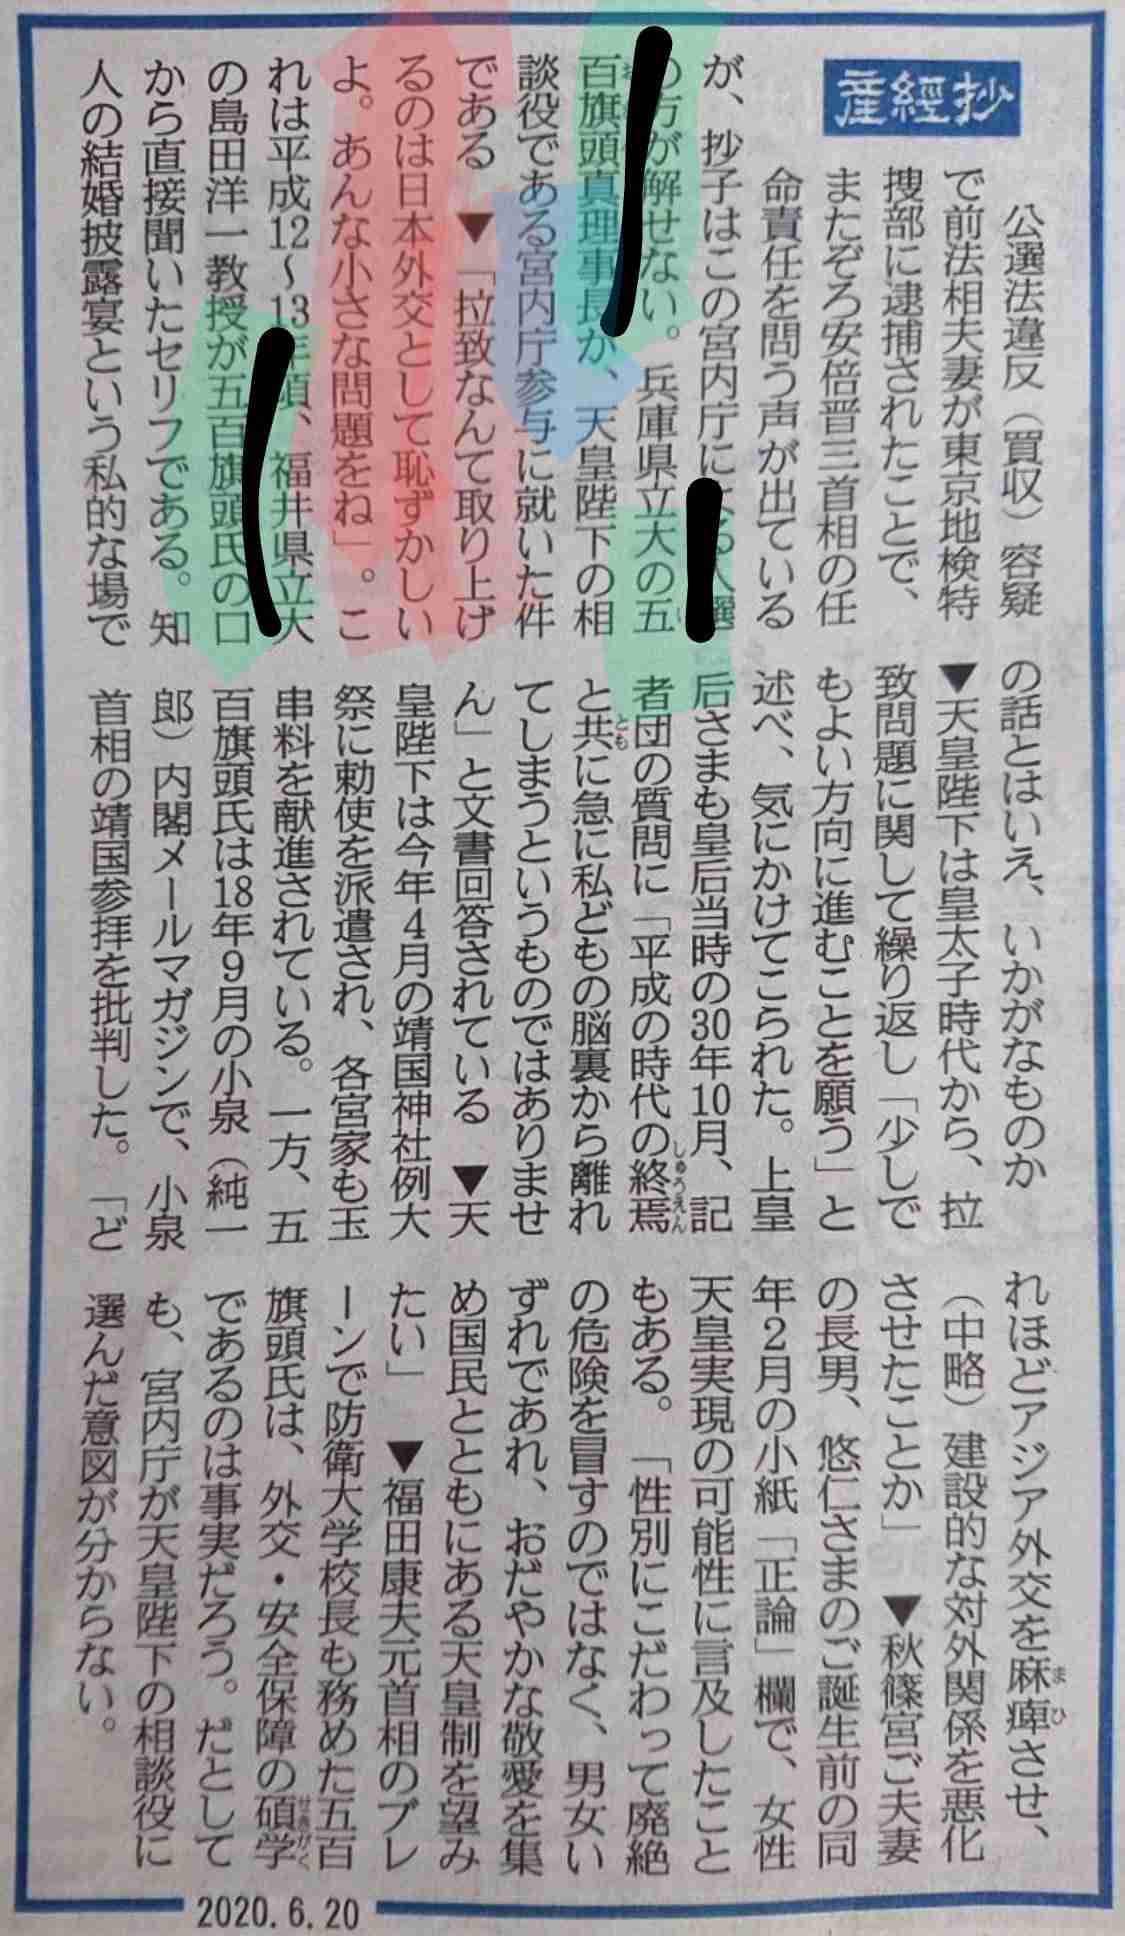 産經抄
公選法違反(買収)容疑
で前法相夫妻が東京地検特
捜部に逮捕されたことで、
またぞろ安倍晋三首相の任
命責任を問う声が出ている
が、抄子はこの宮内庁に
の方が解せない。兵庫県立大の五
百旗頭真理事長が、天皇陛下の相
談役である宮内庁参与に就いた件
である ▼「拉致なんて取り上げ
るのは日本外交として恥ずかしい
よ。あんな小さな問題をね」。こ
れは平成12〜13年頃、福井県立大
の島田洋一教授が五百旗頭氏の口
から直接聞いたセリフである。知
人の結婚披露宴という私的な場で
の話とはいえ、いかがなものか
▼天皇陛下は皇太子時代から、拉
致問題に関して繰り返し「少しで
もよい方向に進むことを願う」と
述べ、気にかけてこられた。上皇
后さまも皇后当時の30年10月、記
者団の質問に「平成の時代の終焉
と共に急に私どもの脳裏から離れ
てしまうというものではありませ
ん」と文書回答されている ▼天
皇陛下は今年4月の靖国神社例大
祭に勅使を派遣され、各宮家も玉
串料を献進されている。一方、五
百旗頭氏は18年9月の小泉(純一
郎)内閣メールマガジンで、小泉
首相の靖国参拝を批判した。「ど
れほどアジア外交を麻痺させ、
(中略)建設的な対外関係を悪化
させたことか」 ▼秋篠宮ご夫妻
の長男、悠仁さまのご誕生前の同
年2月の小紙「正論」欄で、女性
天皇実現の可能性に言及したこと
もある。「性別にこだわって廃絶
の危険を冒すのではなく、男女い
ずれであれ、おだやかな敬愛を集
め国民とともにある天皇制を望み
たい」 ▼福田康夫元首相のブレ
ーンで防衛大学校長も務めた五百
旗頭氏は、外交・安全保障の碩学
であるのは事実だろう。だとして
も、宮内庁が天皇陛下の相談役に
選んだ意図が分からない。
2020.6.20